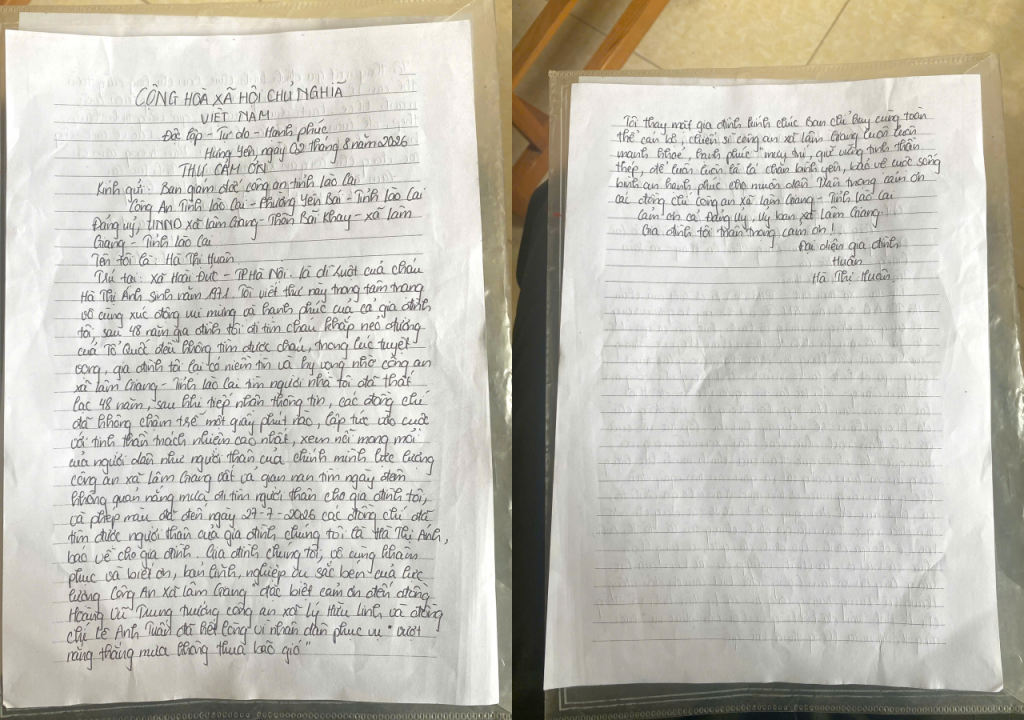 CỘNG HOÀ XÃ HỘI CHỦ NGHĨA
VIỆT NAM
Độc lập - Tự do - Hạnh phúc
Hưng Yên, ngày 02 tháng 8 năm 2026
THƯ CẢM ƠN
Kính gửi: Ban giám đốc công an tỉnh Lào Cai
Công An Tỉnh Lào Cai - Phường Yên Bái - Tỉnh Lào Cai
Đảng uỷ, UNND xã Lâm Giang - Thôn Bãi Khay - xã Lâm
Giang - Tỉnh Lào Cai
Tên tôi là: Hà Thị Huân
Trú tại: xã Hoài Đức - TP Hà Nội. là dì ruột của cháu
Hà Thị Ánh sinh năm 1971. Tôi viết thư này trong tâm trạng
vô cùng xúc động vui mừng và hạnh phúc của cả gia đình
tôi, sau 48 năm gia đình tôi đi tìm cháu khắp nẻo đường
của Tổ Quốc đều không tìm được cháu, trong lúc tuyệt
vọng, gia đình tôi lại có niềm tin và hy vọng nhờ công an
xã Lâm Giang - Tỉnh Lào Cai tìm người nhà tôi đã thất
lạc 48 năm, sau khi tiếp nhận thông tin, các đồng chí
đã không chậm trễ một giây phút nào, lập tức vào cuộc
với tinh thần trách nhiệm cao nhất, xem nỗi mong mỏi
của người dân như người thân của chính mình lực lượng
công an xã Lâm Giang vất vả gian nan tìm ngày đêm
không quản nắng mưa, đi tìm người thân cho gia đình tôi,
và phép màu đã đến ngày 27-7-2026 các đồng chí đã
tìm được người thân của gia đình chúng tôi là Hà Thị Ánh,
báo về cho gia đình. Gia đình chúng tôi, vô cùng khâm
phục và biết ơn, bản lĩnh, nghiệp vụ sắc bén của lực
lượng Công An xã Lâm Giang" đặc biệt cảm ơn đến đồng
Hoàng Vũ Trung trưởng công an xã Lý Hữu Linh và đồng
chí Lê Anh Tuấn đã hết lòng vì nhân dân phục vụ "vượt
nắng thắng mưa không thua bão gió"
Tôi thay mặt gia đình kính chúc Ban chỉ huy cùng toàn
thể cán bộ, chiến sĩ công an xã Lâm Giang luôn luôn
mạnh khoẻ, hạnh phúc mưu trí, giữ vững tinh thần
thép, để luôn luôn là lá chắn bình yên, bảo vệ cuộc sống
bình an hạnh phúc cho muôn dân Trân trọng cảm ơn
các đồng chí công an xã Lâm Giang - Tỉnh Lào Cai
Cảm ơn các Đảng uỷ, uỷ ban xã Lâm Giang.
Gia đình tôi trân trọng cảm ơn!
Đại diện gia đình
Huân
Hà Thị Huân